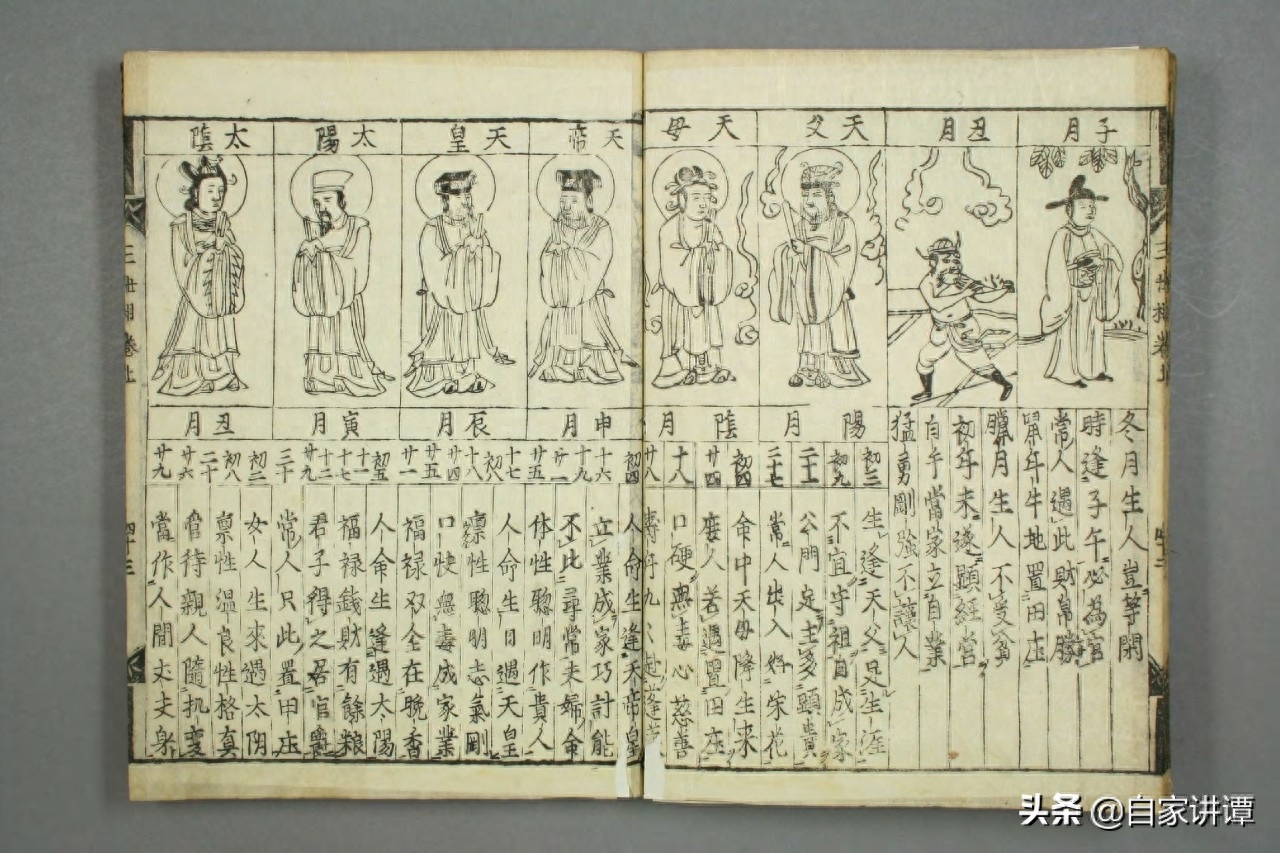 子月
冬月生人豈等閑
時逢子午必為官
常人遇此財帛勝
鼠年牛地置田庄
丑月
臘月生人不受
初年未遂顯經営
自手當家立自業
猛勇剛強不讓人
天父
陽月
初三
初九
二十七
生逢天父足生涯
不宜守祖自成家
公門定主多顕貴
常人出入好栄花
天母
陰月
初四
廿四
十八
廿八
命中天母降生来
人若遇置田庄
口硬無毒心慈善
天帝
申月
初四
十六
十九
廿五
人命生逢天帝皇
立業成家巧計能
不比尋常夫婦命
体性聡明作貴人
天皇
辰月
十七
初八
十八
廿四
廿五
廿一
人命生日遇天皇
禀性聡明志氣剛
口快無毒成家業
福禄双全在晩香
太陽
寅月
初五
十一
十七
十二
廿九
三十
人命生逢遇太陽
福禄錢財有餘粮
君子得之居官爵
常人只此置田庄
太陰
丑月
初三
初八
二十
廿六
廿九
女人生來遇太阴
禀性温良性格真
管待親人隨机变
當作人間丈夫身
三世相卷上
四十三
头条 @自家讲谭